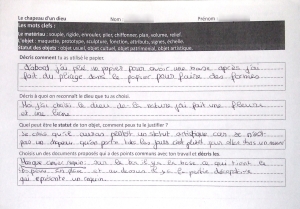 Le chapeau d'un dieu Nom : Prénom :
Les mots clefs :
La matière : souple, rigide, enrouler, plier, chiffonner, plan, volume, relief.
L'objet : maquette, prototype, sculpture, fonction, attributs, signes, échelle.
Statut des objets : objet usuel, objet culturel, objet patrimonial, objet artistique.
Décris comment tu as utilisé le papier.
D'abord j'ai plié le papier pour avoir une base après j'ai
fait du pliage dans le papier pour faire des formes
Décris à quoi on reconnaît le dieu que tu as choisi.
Moi j'ai choisi le dieu de la nature j'ai fait une fleur
et une
Quel peut être le statut de ton objet, comment peux-tu le justifier ?
Je crois qu'il aurait plutôt un statut artistique car ce n'est
pas un chapeau qu'on porte tous les jours c'est plutôt pour aller dans un
Choisis un des documents proposés qui a des points communs avec ton travail et décris les.
Masque
il y a la base ce qui tient le
et au dessus il y a la partie décorative
qui représente un requin